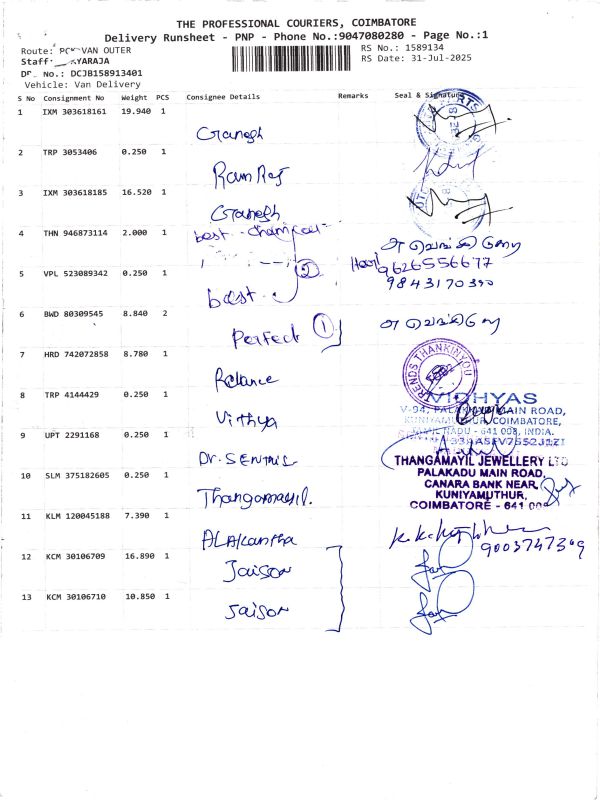 THE PROFESSIONAL COURIERS, COIMBATORE
Delivery Runsheet - PNP - Phone No.:9047080280 - Page No.:1
Route: VAN OUTER
RS No.: 1589134
Staff: YARAJA
RS Date: 31-Jul-2025
No.: DCJB158913401
Vehicle: Van Delivery
S No Consignment No Weight PCS Consignee Details Remarks Seal & Signature
1 IXM 303618161 19.940 1 Ganesh
2 TRP 3053406 0.250 1 Ram Raj
3 IXM 303618185 16.520 1 Ganesh
4 THN 946873114 2.000 1 best
9626556677
5 VPL 523089342 0.250 1 best 2
9843170390
6 BWD 80309545 8.840 2 Perfect 1
7 HRD 742072858 8.780 1 Reliance
TRENDS THANKINYOU
8 TRP 4144429 0.250 1 Vithya
VIDHYAS
V-94, PALAKKAD MAIN ROAD,
KUNIYAMUTHUR, COIMBATORE,
TAMIL NADU - 641 008, INDIA.
9 UPT 2291168 0.250 1 Dr. SENTHIL
10 SLM 375182605 0.250 1 Thangamayil.
THANGAMAYIL JEWELLERY LTD
PALAKADU MAIN ROAD,
CANARA BANK NEAR,
KUNIYAMUTHUR,
COIMBATORE - 641 008
11 KLM 120045188 7.390 1 ALAKANTHA
9003747369
12 KCM 30106709 16.890 1 Jaison
13 KCM 30106710 10.850 1 Jaison